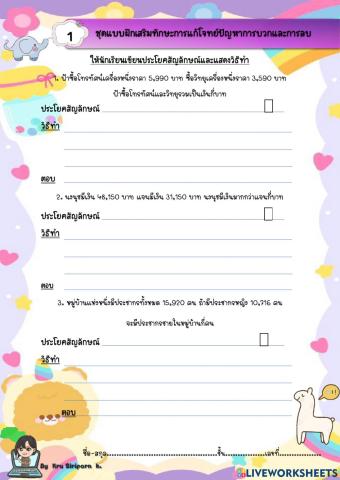 1 ชุดแบบฝึกเสริมทักษะการแก้โจทย์ปัญหาการบวกและการลบ
ให้นักเรียนเขียนประโยคสัญลักษณ์และแสดงวิธีทำ
1. ป้าซื้อโทรทัศน์เครื่องหนึ่งราคา 5,990 บาท ซื้อวิทยุเครื่องหนึ่งราคา 3,590 บาท
ป้าซื้อโทรทัศน์และวิทยุรวมเป็นเงินกี่บาท
ประโยคสัญลักษณ์
วิธีทำ
ตอบ
2. นงนุชมีเงิน 48,150 บาท แจนมีเงิน 31,150 บาท นงนุชมีเงินมากกว่าแจนกี่บาท
ประโยคสัญลักษณ์
วิธีทำ
ตอบ
3. หมู่บ้านแห่งหนึ่งมีประชากรทั้งหมด 15,920 คน ถ้ามีประชากรหญิง 10,716 คน
จะมีประชากรชายในหมู่บ้านกี่คน
ประโยคสัญลักษณ์
วิธีทำ
ตอบ
ชื่อ-สกุล ชั้น เลขที่
By Kru Siriporn k.
LIVEWORKSHEETS